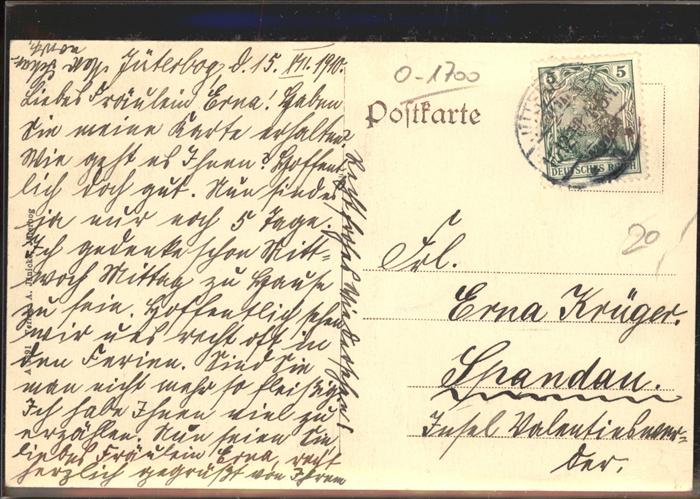 Jüterbog, d. 15. VII. 1910.
Liebes Fräulein Erna! Haben
Sie meine Karte erhalten?
Wie geht es Ihnen? Hoffent-
lich doch gut. Nun sind es
ja nur noch 5 Tage.
Ich gedenke schon Mitt-
woch Mittag zu Hause
zu sein. Hoffentlich sehen
wir uns recht oft in
den Ferien. Sind Sie
man nicht mehr so fleißig.
Ich habe Ihnen viel zu
erzählen. Nun seien Sie
liebes Fräulein Erna, recht
herzlich gegrüßt von Ihrem
Recht frohes Wiedersehen!
Postkarte
0-1700
5 5
DEUTSCHES REICH
20
Frl.
Erna Krüger.
Spandau.
Insel Valentinswer-
der.